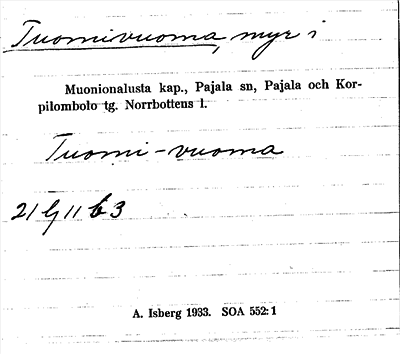 Tuomivuoma, myr i
Muonionalusta kap., Pajala sn, Pajala och Kor-
pilombolo tg. Norrbottens l.
Tuomi-vuoma
21 G 11 b 3
A. Isberg 1933. SOA 552:1